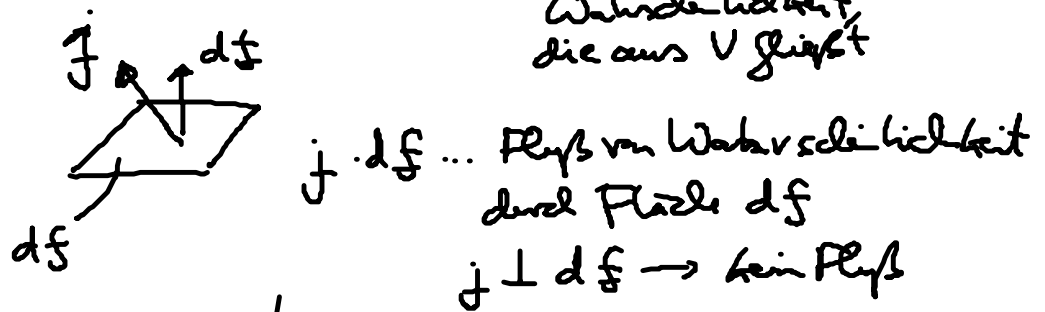 Wahrscheinlichkeit,
die aus V fließt
j
df
j · df ... Fluß von Wahrscheinlichkeit
durch Fläche df
df
j ⊥ df → kein Fluß